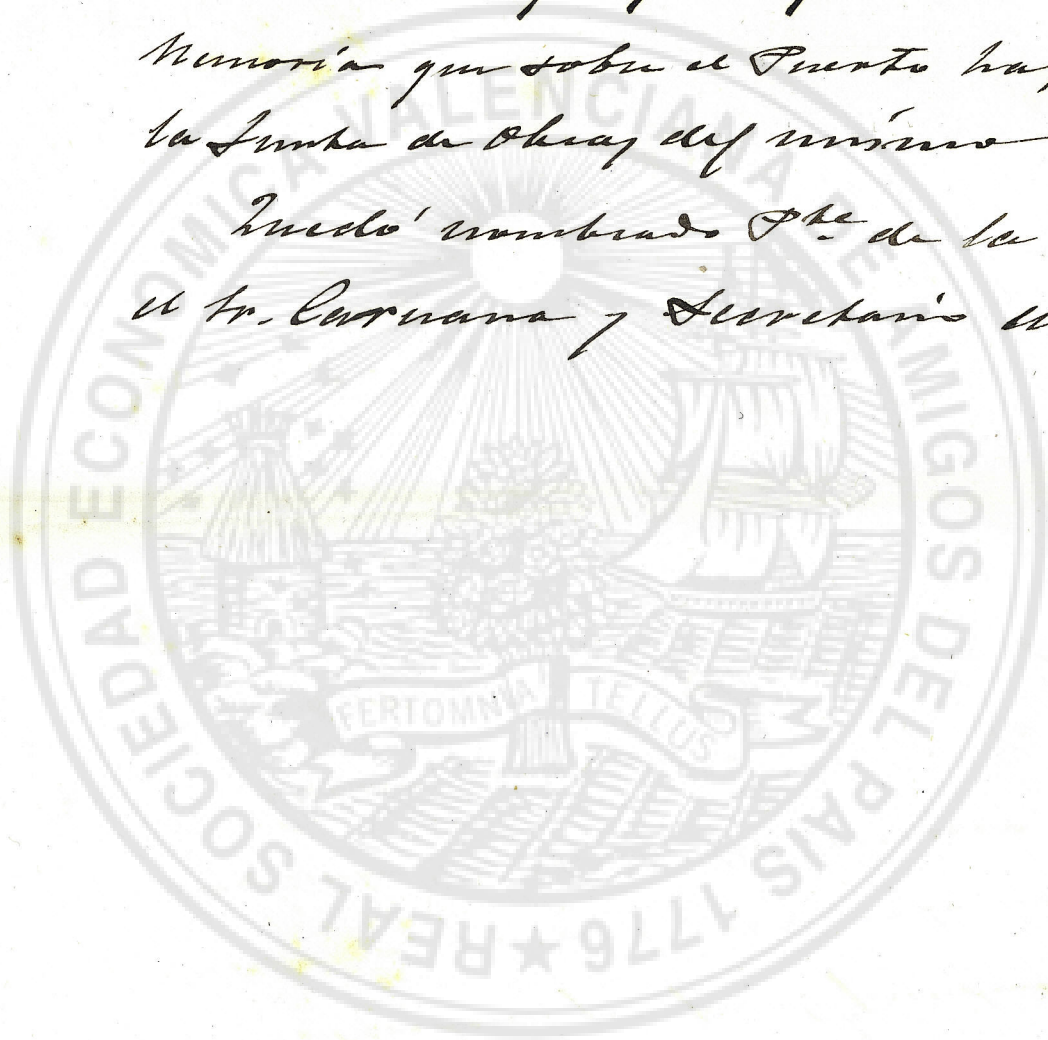 Memoria que sobre el Puerto ha
la Junta de Obras del mismo
Quedó nombrado Pte de la
el Sr. Caruana y Secretario el
REAL SOCIEDAD ECONOMICA VALENCIANA DE AMIGOS DEL PAIS 1776 ★
FERTOMNIA TELLUS